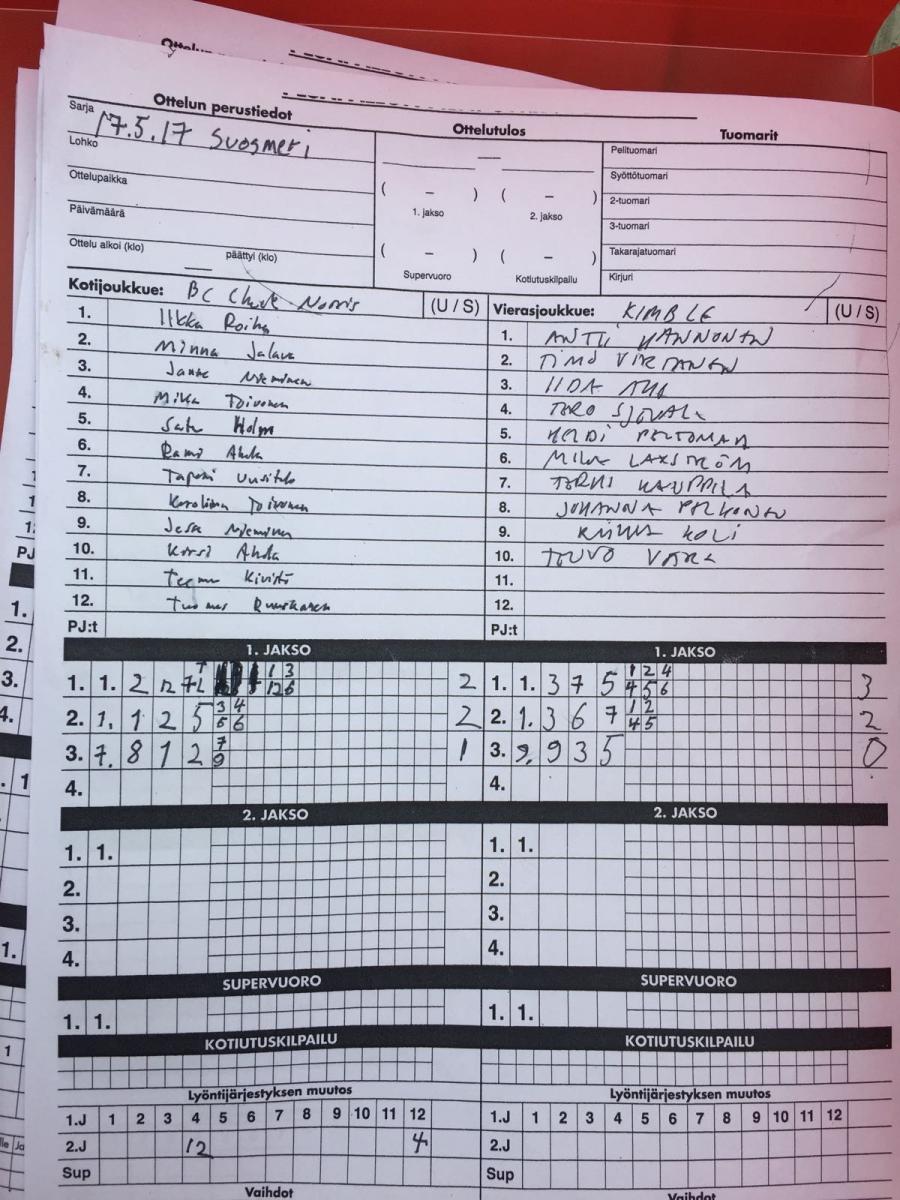 Ottelun perustiedot
Ottelutulos
Tuomarit
Sarja 17.5.17 Suosmeri
Lohko
Ottelupaikka
Päivämäärä
Ottelu alkoi (klo) päättyi (klo)
—
( – ) ( – )
1. jakso 2. jakso
( – ) ( – )
Supervuoro Kotiutuskilpailu
Pelituomari
Syöttötuomari
2-tuomari
3-tuomari
Takarajatuomari
Kirjuri
Kotijoukkue: BC Chuck Norris (U / S)
1. Ilkka Roiha
2. Minna Jalava
3. Janne Nieminen
4. Mika Toivonen
5. Satu Holm
6. Rami Ahola
7. Tapani Uusitalo
8. Karoliina Toivonen
9. Jesse Nieminen
10. Kirsi Ahola
11. Teemu Kivistö
12. Tuomas Ruuskanen
PJ:t
Vierasjoukkue: KIMBLE (U / S)
1. ANTTI HANNONEN
2. TIMO VIRTANEN
3. IIDA
4. TERO
5. HEIDI PELTOMAA
6. LAXSTRÖM
7. KAUPPILA
8. JOHANNA PELKONEN
9. KOLI
10. TEUVO
11.
12.
PJ:t
1. JAKSO
1. 1. 2 2
2. 1. 1 2 5 3 4 5 6 2
3. 7. 8 1 2 7 9 1
4.
1. JAKSO
1. 1. 3 7 5 1 2 4 4 5 6 3
2. 1. 3 6 7 1 2 4 5 2
3. 9. 9 3 5 0
4.
2. JAKSO
1. 1.
2.
3.
4.
2. JAKSO
1. 1.
2.
3.
4.
SUPERVUORO
1. 1.
SUPERVUORO
1. 1.
KOTIUTUSKILPAILU
KOTIUTUSKILPAILU
Lyöntijärjestyksen muutos
1.J 1 2 3 4 5 6 7 8 9 10 11 12
2.J 12 4
Sup
Vaihdot
Lyöntijärjestyksen muutos
1.J 1 2 3 4 5 6 7 8 9 10 11 12
2.J
Sup
Vaihdot